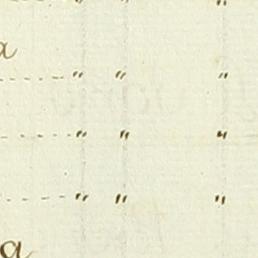 " " "
a
" " "
" " "
" " "
a